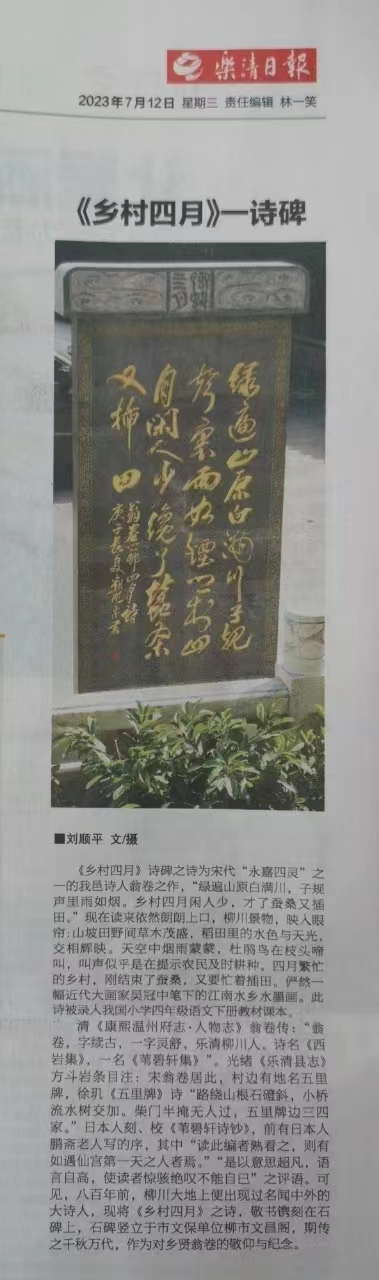 樂清日報
2023年7月12日 星期三 责任编辑 林一笑
《乡村四月》一诗碑
绿遍山原白满川子规
声裏雨如煙乡村四
月闲人少纔了蚕桑
又插田
■刘顺平 文/摄
《乡村四月》诗碑之诗为宋代“永嘉四灵”之
一的我邑诗人翁卷之作，“绿遍山原白满川，子规
声里雨如烟。乡村四月闲人少，才了蚕桑又插
田。”现在读来依然朗朗上口，柳川景物，映入眼
帘：山坡田野间草木茂盛，稻田里的水色与天光，
交相辉映。天空中烟雨蒙蒙，杜鹃鸟在枝头啼
叫，叫声似乎是在提示农民及时耕种。四月繁忙
的乡村，刚结束了蚕桑，又要忙着插田。俨然一
幅近代大画家吴冠中笔下的江南水乡水墨画。此
诗被录入我国小学四年级语文下册教材课本。
清《康熙温州府志·人物志》翁卷传：“翁
卷，字续古，一字灵舒，乐清柳川人。诗名《西
岩集》，一名《苇碧轩集》”。光绪《乐清县志》
方斗岩条目注：宋翁卷居此，村边有地名五里
牌，徐玑《五里牌》诗“路绕山根石磴斜，小桥
流水树交加。柴门半掩无人过，五里牌边三四
家。”日本人刻、校《苇碧轩诗钞》，前有日本人
鹏斋老人写的序，其中“读此编者熟看之，则有
如遇仙宫第一天之人者焉。”“是以意思超凡，语
言自高，使读者惊骇绝叹不能自已”之评语。可
见，八百年前，柳川大地上便出现过名闻中外的
大诗人，现将《乡村四月》之诗，敬书镌刻在石
碑上，石碑竖立于市文保单位柳市文昌阁，期传
之千秋万代，作为对乡贤翁卷的敬仰与纪念。